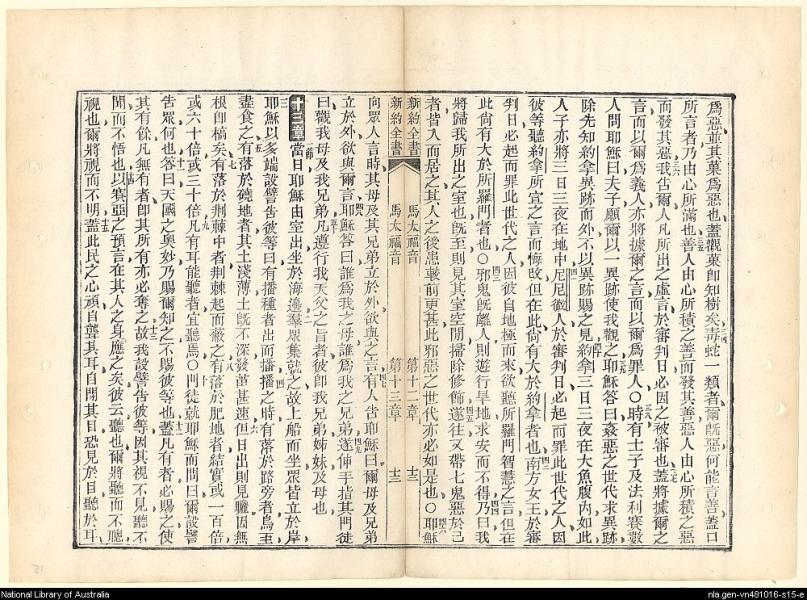 爲惡並其菓爲惡也蓋觀菓卽知樹矣毒蛇一類者爾旣惡何能言善蓋口
所言者乃由心所滿也善人由心所積之善而發其善惡人由心所積之惡
而發其惡我占爾人凡所出之虛言於審判日必因之被審也蓋將據爾之
言而以爾爲義人亦將據爾之言而以爾爲罪人〇時有士子及法利賽數
人問耶穌曰夫子願爾以一異跡使我觀之耶穌答曰姦惡之世代求異跡
除先知約拿異跡而外不以異跡賜之見約拿三日三夜在大魚腹內如此
人子亦將三日三夜在地中尼尼微人於審判日必起而罪此世代之人因
彼等聽約拿所宣之言而悔改但在此尙有大於約拿者也南方女王於審
判日必起而罪此世代之人因彼自地極而來欲聽所羅門智慧之言但在
此尙有大於所羅門者也〇邪鬼旣離人則遊行旱地求安而不得乃曰我
將歸我所出之室也旣至則見其室空閒掃除修飾遂往又帶七鬼惡於己
者皆入而居之其人之後患較前更甚此邪惡之世代亦必如是也〇耶穌
新約全書 馬太福音 第十二章 十三
新約全書 馬太福音 第十三章 十三
向眾人言時其母及其兄弟立於外欲與之言有人告耶穌曰爾母及兄弟
立於外欲與爾言耶穌答曰誰爲我之母誰爲我之兄弟遂伸手指其門徒
曰觀我母及我兄弟凡遵行我天父之旨者彼卽我兄弟姊妹及母也
十三章 當日耶穌由室出坐於海邊羣眾集就之故上船而坐眾皆立於岸
耶穌以多端設譬告彼等曰有播種者出而播播之時有落於路旁者鳥至
盡食之有落於磽地者其土淺薄土旣不深發苗甚速但日出則見曬因無
根卽槁矣有落於荊棘中者荊棘起而蔽之有落於肥地者結實或一百倍
或六十倍或三十倍凡有耳能聽者宜聽焉〇門徒就耶穌而問曰爾設譬
告眾何也答曰天國之奧妙乃賜爾知之不賜彼等也蓋凡有者必賜之使
其有餘凡無有者卽其所有亦必奪之故我設譬告彼等因其視不見聽不
聞而不悟也以賽亞之預言在其人之身應之矣彼云聽也爾將聽而不聰
視也爾將視而不明蓋此民之心頑自聾其耳自閉其目恐見於目聽於耳
National Library of Australia
nla.gen-vn481016-s15-e